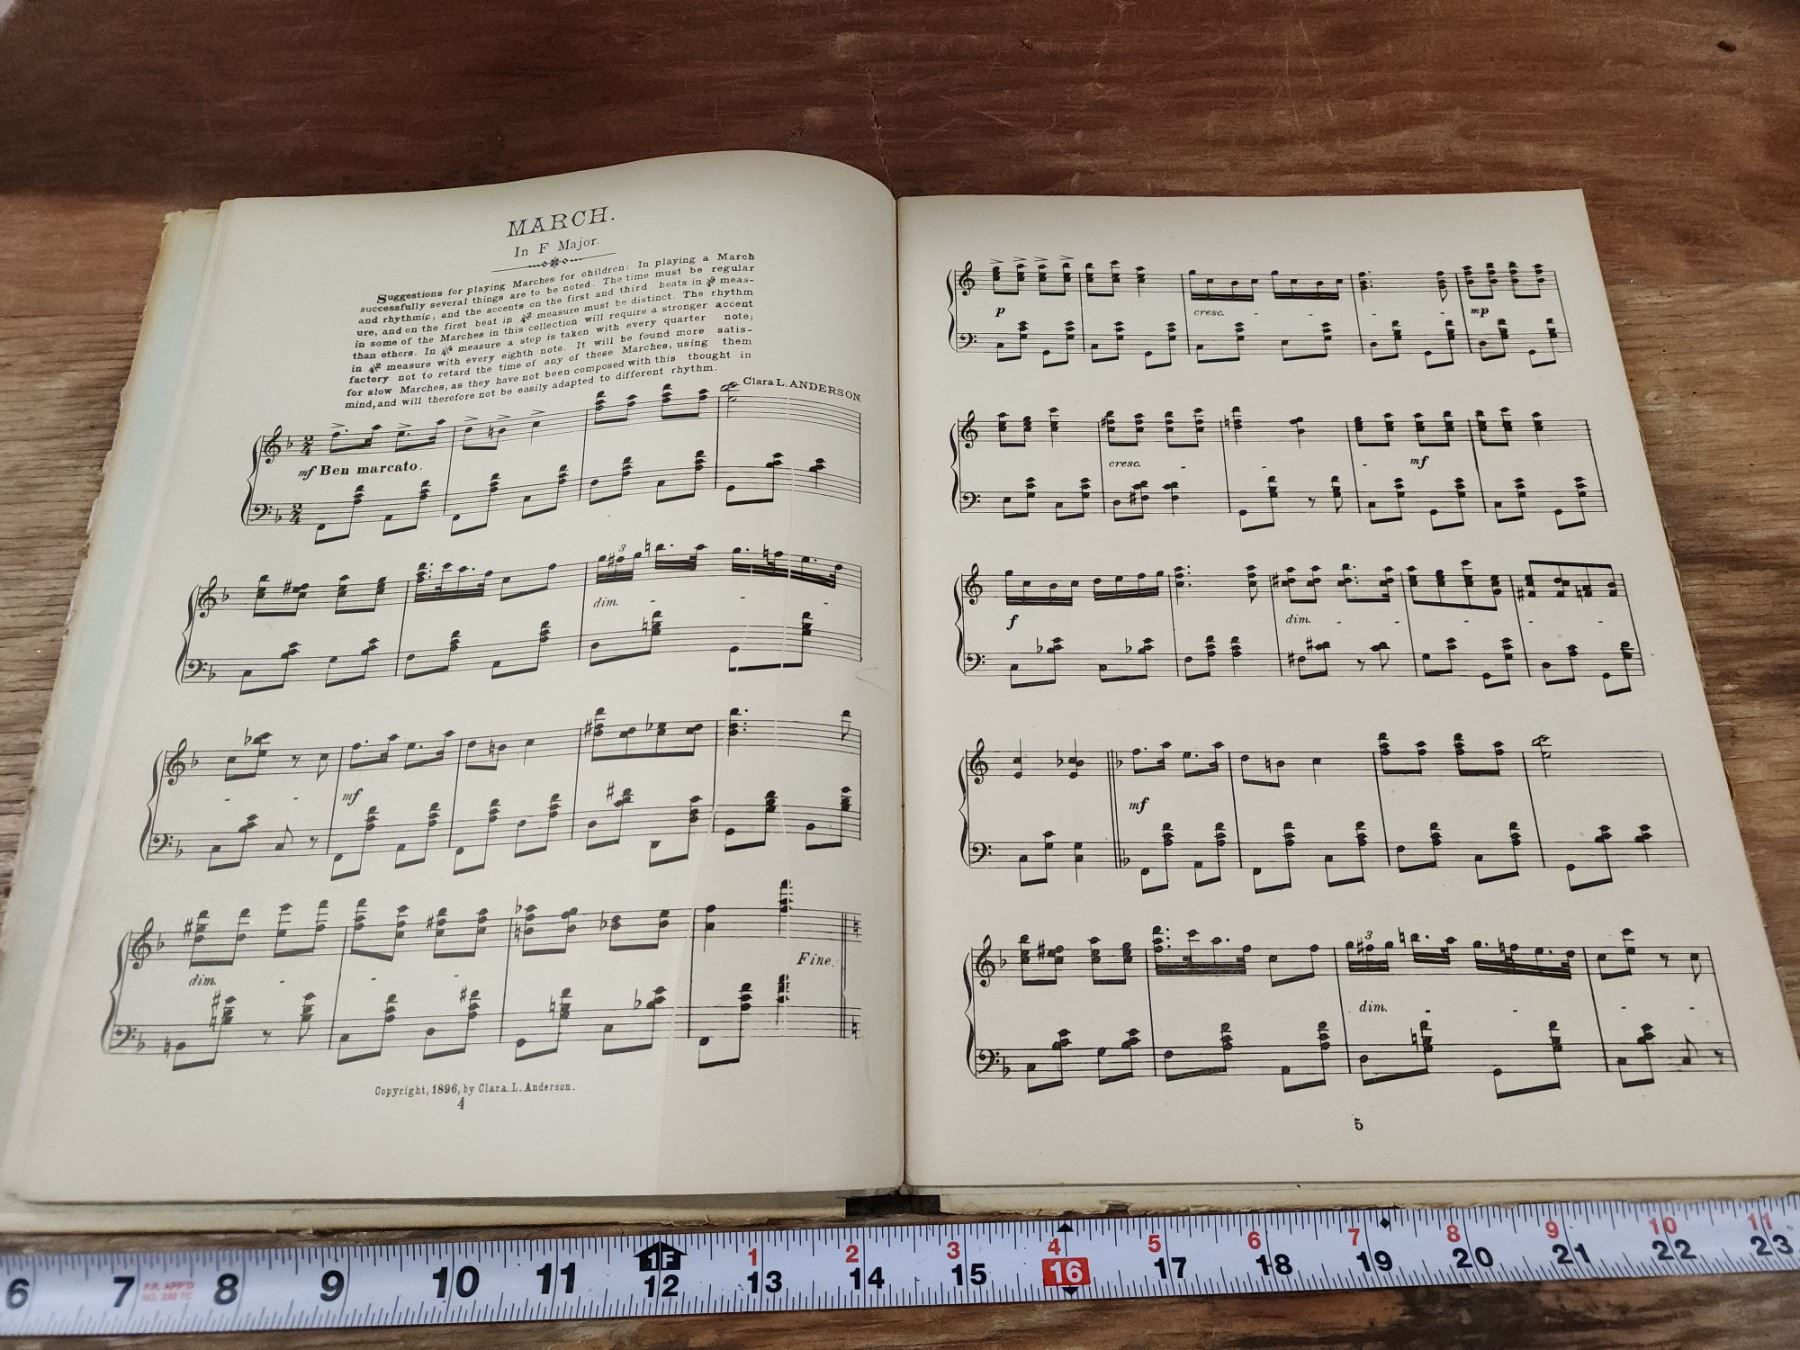 MARCH.
In F Major.
Suggestions for playing Marches for children: In playing a March
successfully several things are to be noted. The time must be regular
and rhythmic, and the accents on the first and third beats in 4/4 meas-
ure, and on the first beat in 2/4 measure must be distinct. The rhythm
in some of the Marches in this collection will require a stronger accent
than others. In 4/4 measure a step is taken with every quarter note;
in 2/4 measure with every eighth note. It will be found more satis-
factory not to retard the time of any of these Marches, using them
for slow Marches, as they have not been composed with this thought in
mind, and will therefore not be easily adapted to different rhythm.
Clara L. ANDERSON.
2/4
mf Ben marcato.
2/4
3
dim. - - -
- - mf
dim. - -
Fine.
Copyright, 1896, by Clara L. Anderson.
4
p cresc. - - mp
cresc. - - - mf
f dim. - - - -
mf
3
dim. - - - -
5
1F 1 2 3 4 5 6 7 8 9 10 11
6 7 P.R. APP'D 8 9 10 11 12 13 14 15 16 17 18 19 20 21 22 23